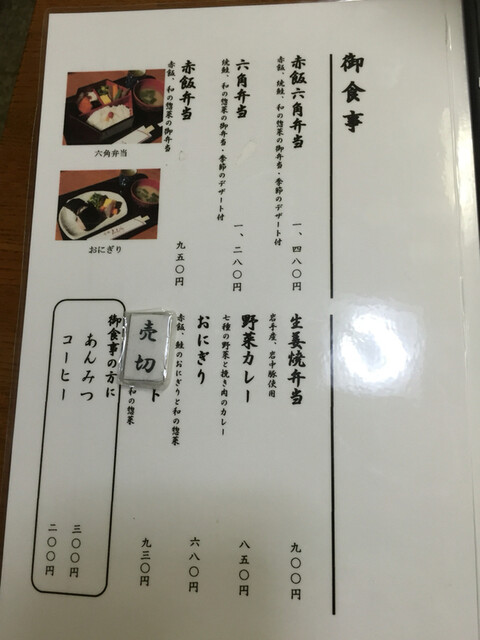 御食事
赤飯六角弁当
赤飯、焼鮭、和の惣菜の御弁当・季節のデザート付
一、四八〇円
六角弁当
焼鮭、和の惣菜の御弁当・季節のデザート付
一、二八〇円
赤飯弁当
赤飯、和の惣菜の御弁当
九五〇円
六角弁当
おにぎり
生姜焼弁当
岩手産、岩中豚使用
九〇〇円
野菜カレー
七種の野菜と挽き肉のカレー
八五〇円
おにぎり
赤飯、鮭のおにぎりと和の惣菜
六八〇円
売切
ト
和の惣菜
九三〇円
御食事の方に
あんみつ
三〇〇円
コーヒー
二〇〇円